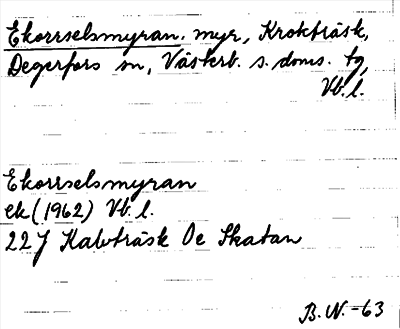 Ekorrselsmyran, myr, Krokträsk,
Degerfors sn, Västerb. s. doms. tg,
Vb. l.
Ekorrselsmyran
ek (1962) Vb. l.
22 J Kalvträsk Oe Skatan
B. N. -63